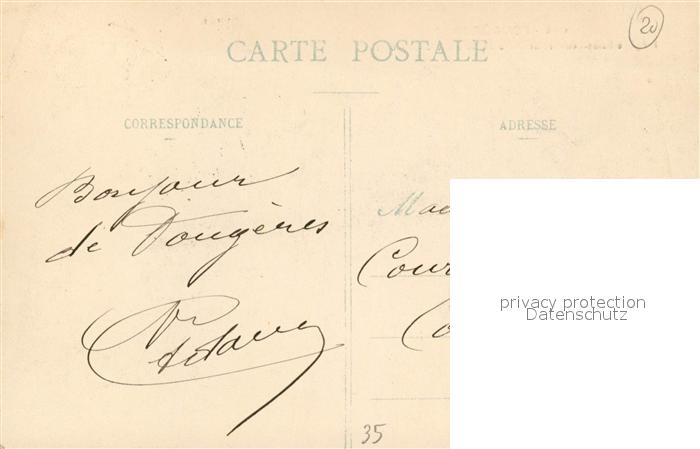 20
CARTE POSTALE
CORRESPONDANCE
ADRESSE
Bonjour
de Fougères
Mad
Cour
Co
privacy protection
Datenschutz
35